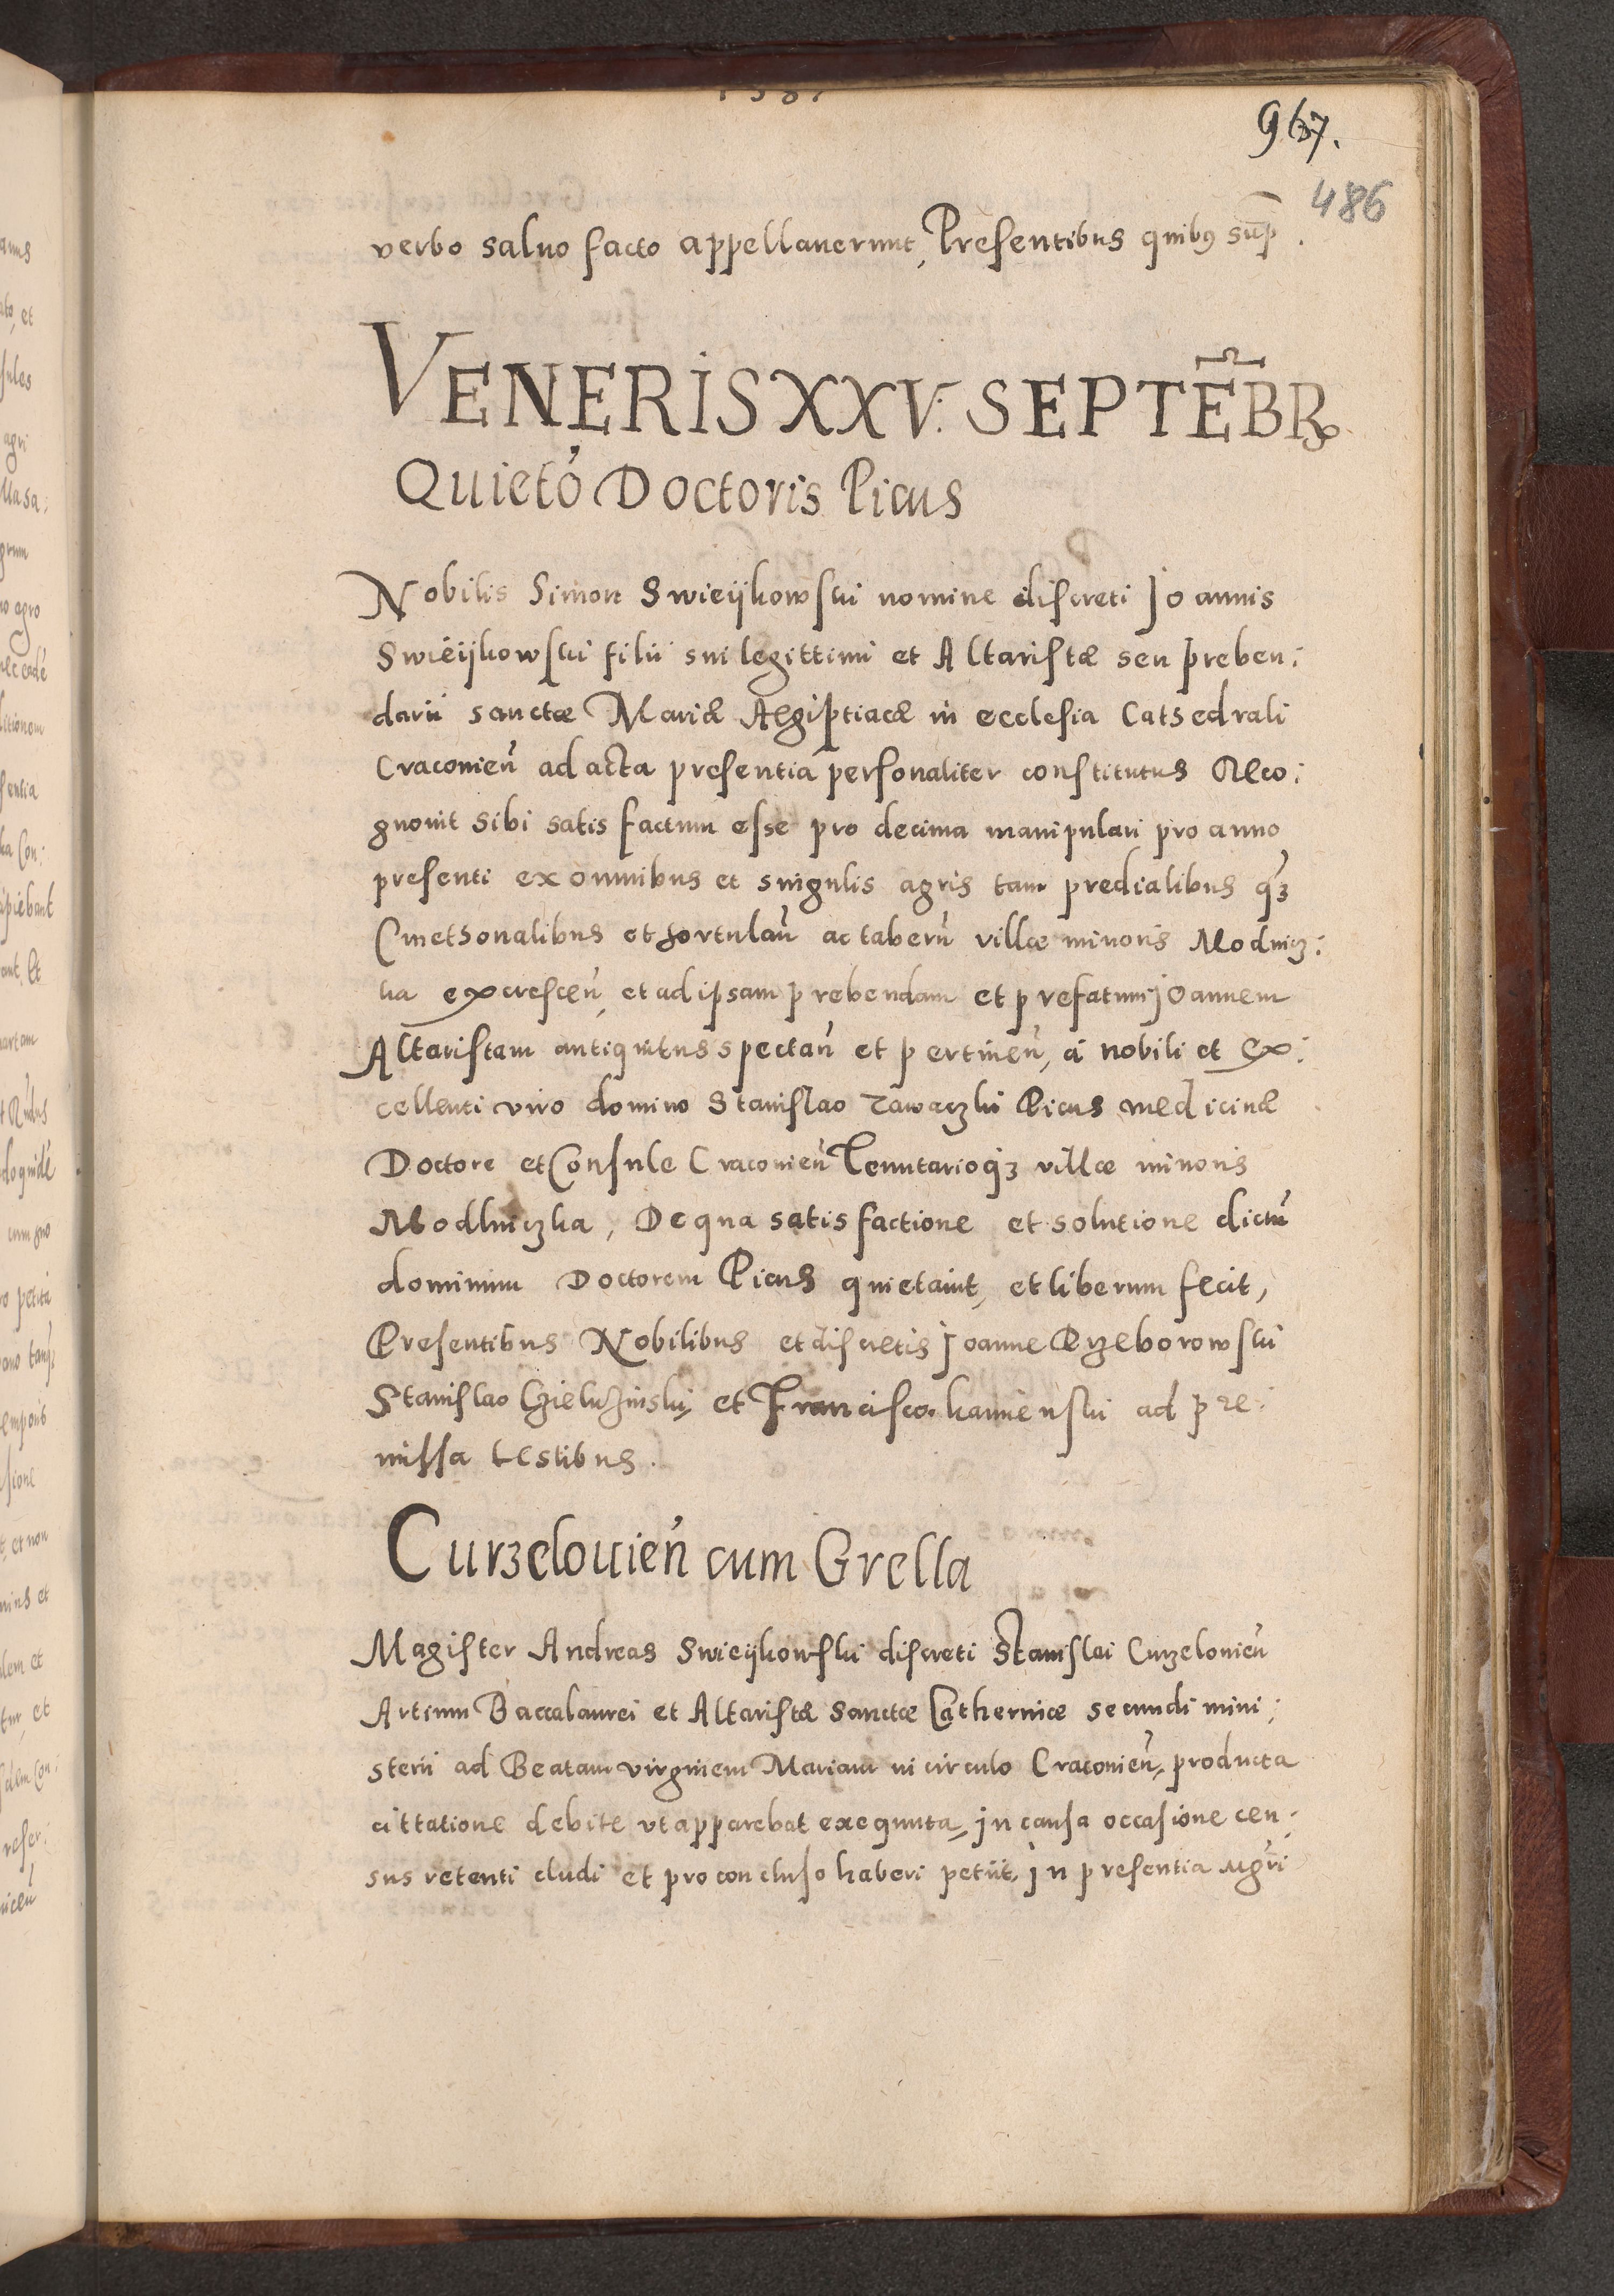 1587
967.
486
verbo saluo facto appellauerunt, Presentibus quibꝯ sup̄.
VENERIS XXV. SEPTĒBR
Quietō Doctoris Picus
Nobilis Simon Swieijkowski nomine discreti Joannis
Swieijkowski filii sui legittimi et Altaristæ seu preben:
darii sanctæ Mariæ Aegiptiacæ in ecclesia Cathedrali
Craconieñ ad acta presentia personaliter constitutus Reco:
gnouit sibi satis factum esse pro decima manipulari pro anno
presenti ex omnibus et singulis agris tam predialibus qꝫ
Cmethonalibus et hortulañ ac taberñ villæ minoris Modnicz:
ka excresceñ, et ad ipsam prebendam et prefatum Joannem
Altaristam antiquitus spectañ et pertineñ, à nobili et ex:
cellenti viro domino Stanislao Zawaczki Picus medicinæ
Doctore et Consule Craconieñ Tenutarioqꝫ villæ minoris
Modlniczka, De qua satisfactione et solutione dictū
dominum Doctorem Picus quietauit, et liberum fecit,
Presentibus Nobilibus et discretis Joanne Przeborowski
Stanislao et Francisco kamienski ad pre:
missa testibus.
Curzelouieñ cum Grella
Magister Andreas Swieijkowski discreti Stanislai Curzelouieñ
Artium Baccalaurei et Altaristæ Sanctæ Catherinæ secundi mini:
sterii ad Beatam virginem Mariam in circulo Cracouieñ, producta
cittatione debite vt apparebat exequuta, in causa occasione cen:
sus retenti cludi et pro concluso haberi petiit, in presentia Mgr̄i